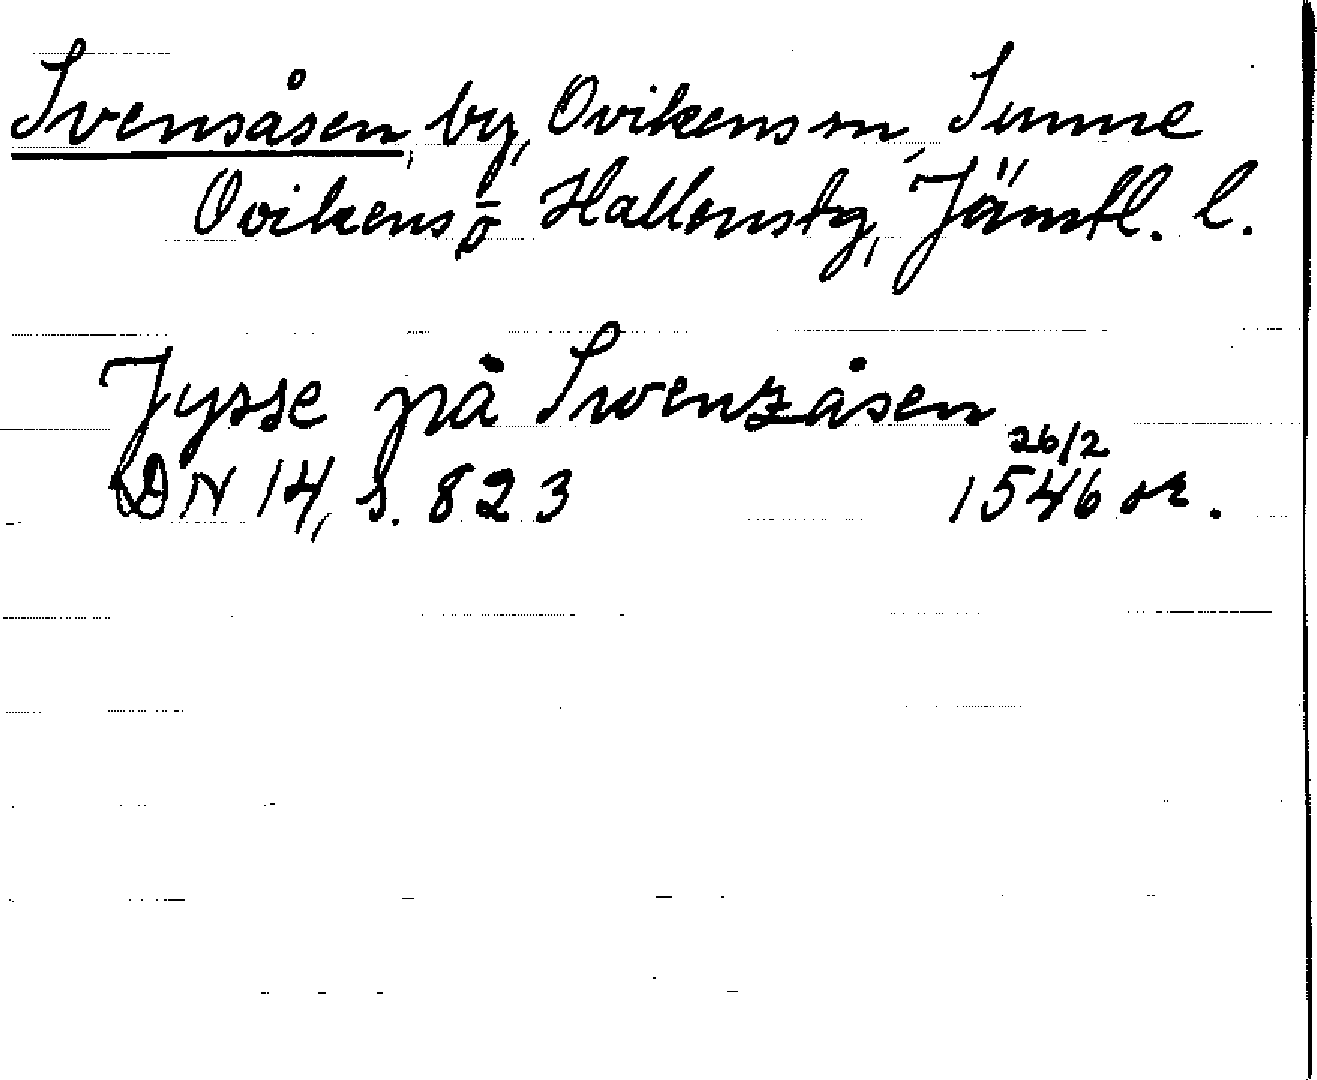 Svensåsen, by, Ovikens sn, Sunne
Ovikens o Hallens tg, Jämtl. l.
Jysse på Swenzåsen
26/2
DN 14, s. 823 1546 or.